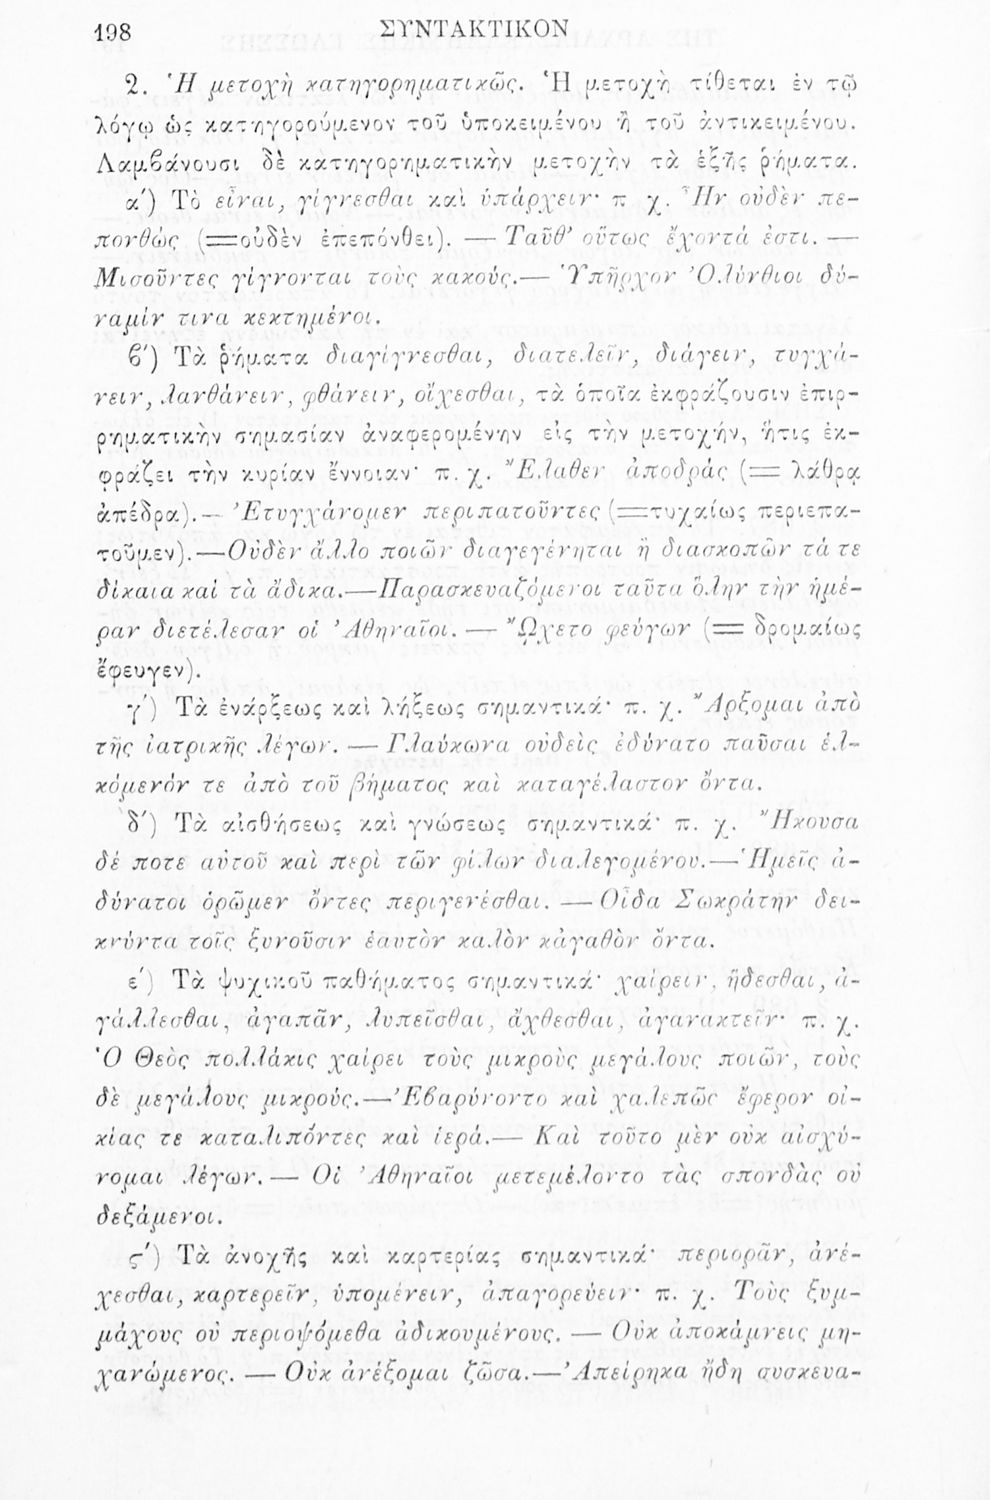 198 ΣΥΝΤΑΚΤΙΚΟΝ
2. Ἡ μετοχὴ κατηγορηματικῶς. Ἡ μετοχὴ τίθεται ἐν τῷ
λόγῳ ὡς κατηγορούμενον τοῦ ὑποκειμένου ἢ τοῦ ἀντικειμένου.
Λαμβάνουσι δὲ κατηγορηματικὴν μετοχὴν τὰ ἑξῆς ῥήματα.
α') Τὸ εἶναι, γίγνεσθαι καὶ ὑπάρχειν· π χ. Ἦν οὐδὲν πε-
πονθώς (=οὐδὲν ἐπεπόνθει). — Ταῦθ' οὕτως ἔχοντά ἐστι. —
Μισοῦντες γίγνονται τοὺς κακούς.— Ὑπῆρχον Ὀλύνθιοι δύ-
ναμίν τινα κεκτημένοι.
β') Τὰ ῥήματα διαγίγνεσθαι, διατελεῖν, διάγειν, τυγχά-
νειν, λανθάνειν, φθάνειν, οἴχεσθαι, τὰ ὁποῖα ἐκφράζουσιν ἐπιρ-
ρηματικὴν σημασίαν ἀναφερομένην εἰς τὴν μετοχήν, ἥτις ἐκ-
φράζει τὴν κυρίαν ἔννοιαν· π. χ. Ἔλαθεν ἀποδράς (= λάθρᾳ
ἀπέδρα).— Ἐτυγχάνομεν περιπατοῦντες (=τυχαίως περιεπα-
τοῦμεν).—Οὐδὲν ἄλλο ποιῶν διαγεγένηται ἢ διασκοπῶν τά τε
δίκαια καὶ τὰ ἄδικα.—Παρασκευαζόμενοι ταῦτα ὅλην τὴν ἡμέ-
ραν διετέλεσαν οἱ Ἀθηναῖοι. — Ὤχετο φεύγων (= δρομαίως
ἔφευγεν).
γ') Τὰ ἐνάρξεως καὶ λήξεως σημαντικά· π. χ. Ἄρξομαι ἀπὸ
τῆς ἰατρικῆς λέγων. — Γλαύκωνα οὐδεὶς ἐδύνατο παῦσαι ἑλ-
κόμενόν τε ἀπὸ τοῦ βήματος καὶ καταγέλαστον ὄντα.
δ') Τὰ αἰσθήσεως καὶ γνώσεως σημαντικά· π. χ. Ἤκουσα
δέ ποτε αὐτοῦ καὶ περὶ τῶν φίλων διαλεγομένου.—Ἡμεῖς ἀ-
δύνατοι ὁρῶμεν ὄντες περιγενέσθαι. — Οἶδα Σωκράτην δει-
κνύντα τοῖς ξυνοῦσιν ἑαυτὸν καλὸν κἀγαθὸν ὄντα.
ε') Τὰ ψυχικοῦ παθήματος σημαντικά· χαίρειν, ἥδεσθαι, ἀ-
γάλλεσθαι, ἀγαπᾶν, λυπεῖσθαι, ἄχθεσθαι, ἀγανακτεῖν· π. χ.
Ὁ Θεὸς πολλάκις χαίρει τοὺς μικροὺς μεγάλους ποιῶν, τοὺς
δὲ μεγάλους μικρούς.—Ἐβαρύνοντο καὶ χαλεπῶς ἔφερον οἰ-
κίας τε καταλιπόντες καὶ ἱερά.— Καὶ τοῦτο μὲν οὐκ αἰσχύ-
νομαι λέγων. — Οἱ Ἀθηναῖοι μετεμέλοντο τὰς σπονδὰς οὐ
δεξάμενοι.
ϛ') Τὰ ἀνοχῆς καὶ καρτερίας σημαντικά· περιορᾶν, ἀνέ-
χεσθαι, καρτερεῖν, ὑπομένειν, ἀπαγορεύειν· π. χ. Τοὺς ξυμ-
μάχους οὐ περιοψόμεθα ἀδικουμένους. — Οὐκ ἀποκάμνεις μη-
χανώμενος. — Οὐκ ἀνέξομαι ζῶσα.—Ἀπείρηκα ἤδη συσκευα-